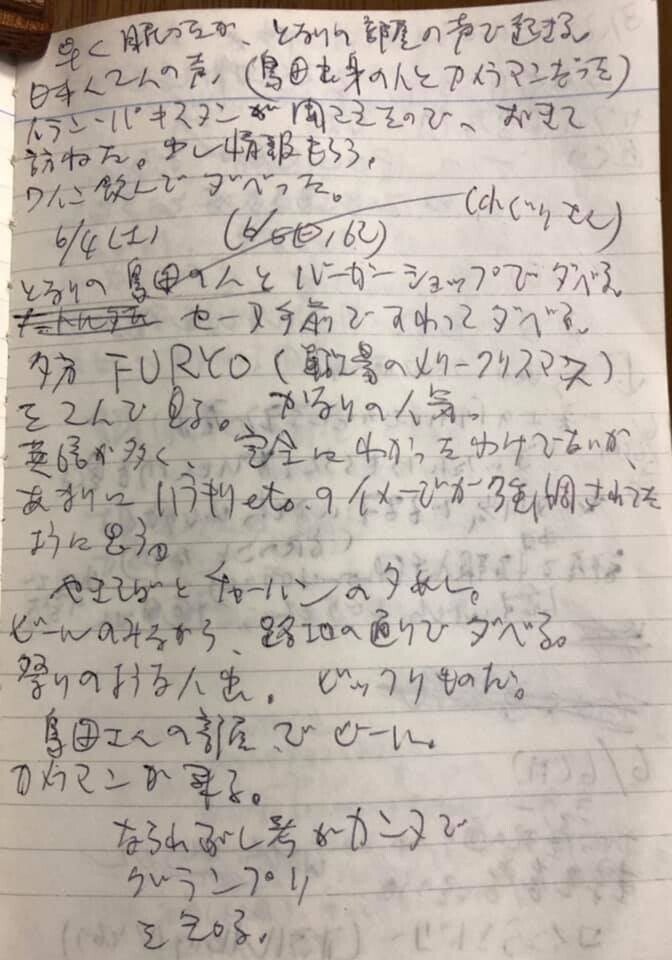 早く眠ったが、となりの部屋の声で起きる。
日本人2人の声。(島田出身の人とカメラマンだった)
イラン・パキスタンが聞こえたので、おきて
訪ねた。少し情報もらう。
ワイン飲んでダベった。
6/4(土)
となりの島田の人とバーガーショップでダベる。
セーヌ手前ですわってダベる。
夕方 FURYO(戦場のメリークリスマス)
を2人で見る。かなりの人気。
英語が多く、完全にわかったわけでないが、
あまりにハラキリetc.のイメージが強調されてた
ように思う。
やきそばとチャーハンの夕めし。
ビールのみながら、路地の通りでダベる。
祭りのような人出。ビックリものだ。
島田さんの部屋でビール。
カメラマンが来る。
ならやまぶし考がカンヌで
グランプリ
を知る。